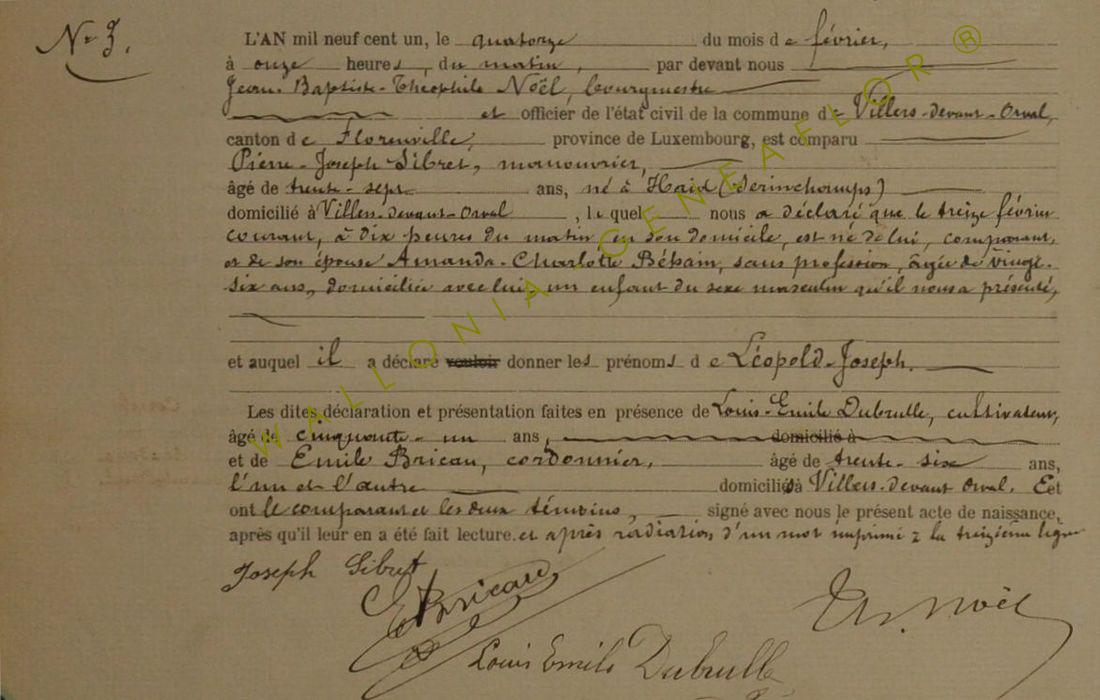 N° 3.
L'AN mil neuf cent un, le quatorze du mois de février,
à onze heures, du matin, par devant nous
Jean-Baptiste-Théophile Noël, bourgmestre
et officier de l'état civil de la commune de Villers-devant-Orval,
canton de Florenville, province de Luxembourg, est comparu
Pierre-Joseph Sibret, manouvrier,
âgé de trente-sept ans, né à Haid (Serinchamps)
domicilié à Villers-devant-Orval, lequel nous a déclaré que le treize février
courant, à dix heures du matin, en son domicile, est né de lui, comparant,
et de son épouse Amanda-Charlotte Béham, sans profession, âgée de vingt-
six ans, domiciliée avec lui, un enfant du sexe masculin qu'il nous a présenté,
et auquel il a déclaré vouloir donner les prénoms de Léopold-Joseph.
Les dites déclaration et présentation faites en présence de Louis-Emile Dubrulle, cultivateur,
âgé de cinquante-un ans, domicilié à
et de Emile Bricau, cordonnier, âgé de trente-six ans,
l'un et l'autre domiciliés à Villers-devant Orval. Et
ont le comparant et les deux témoins, signé avec nous le présent acte de naissance,
après qu'il leur en a été fait lecture. et après radiation d'un mot imprimé à la treizième ligne
Joseph Sibret
E Bricau
Th. Noël
Louis Emile Dubrulle
WALLONIA GENEAFLOR ®